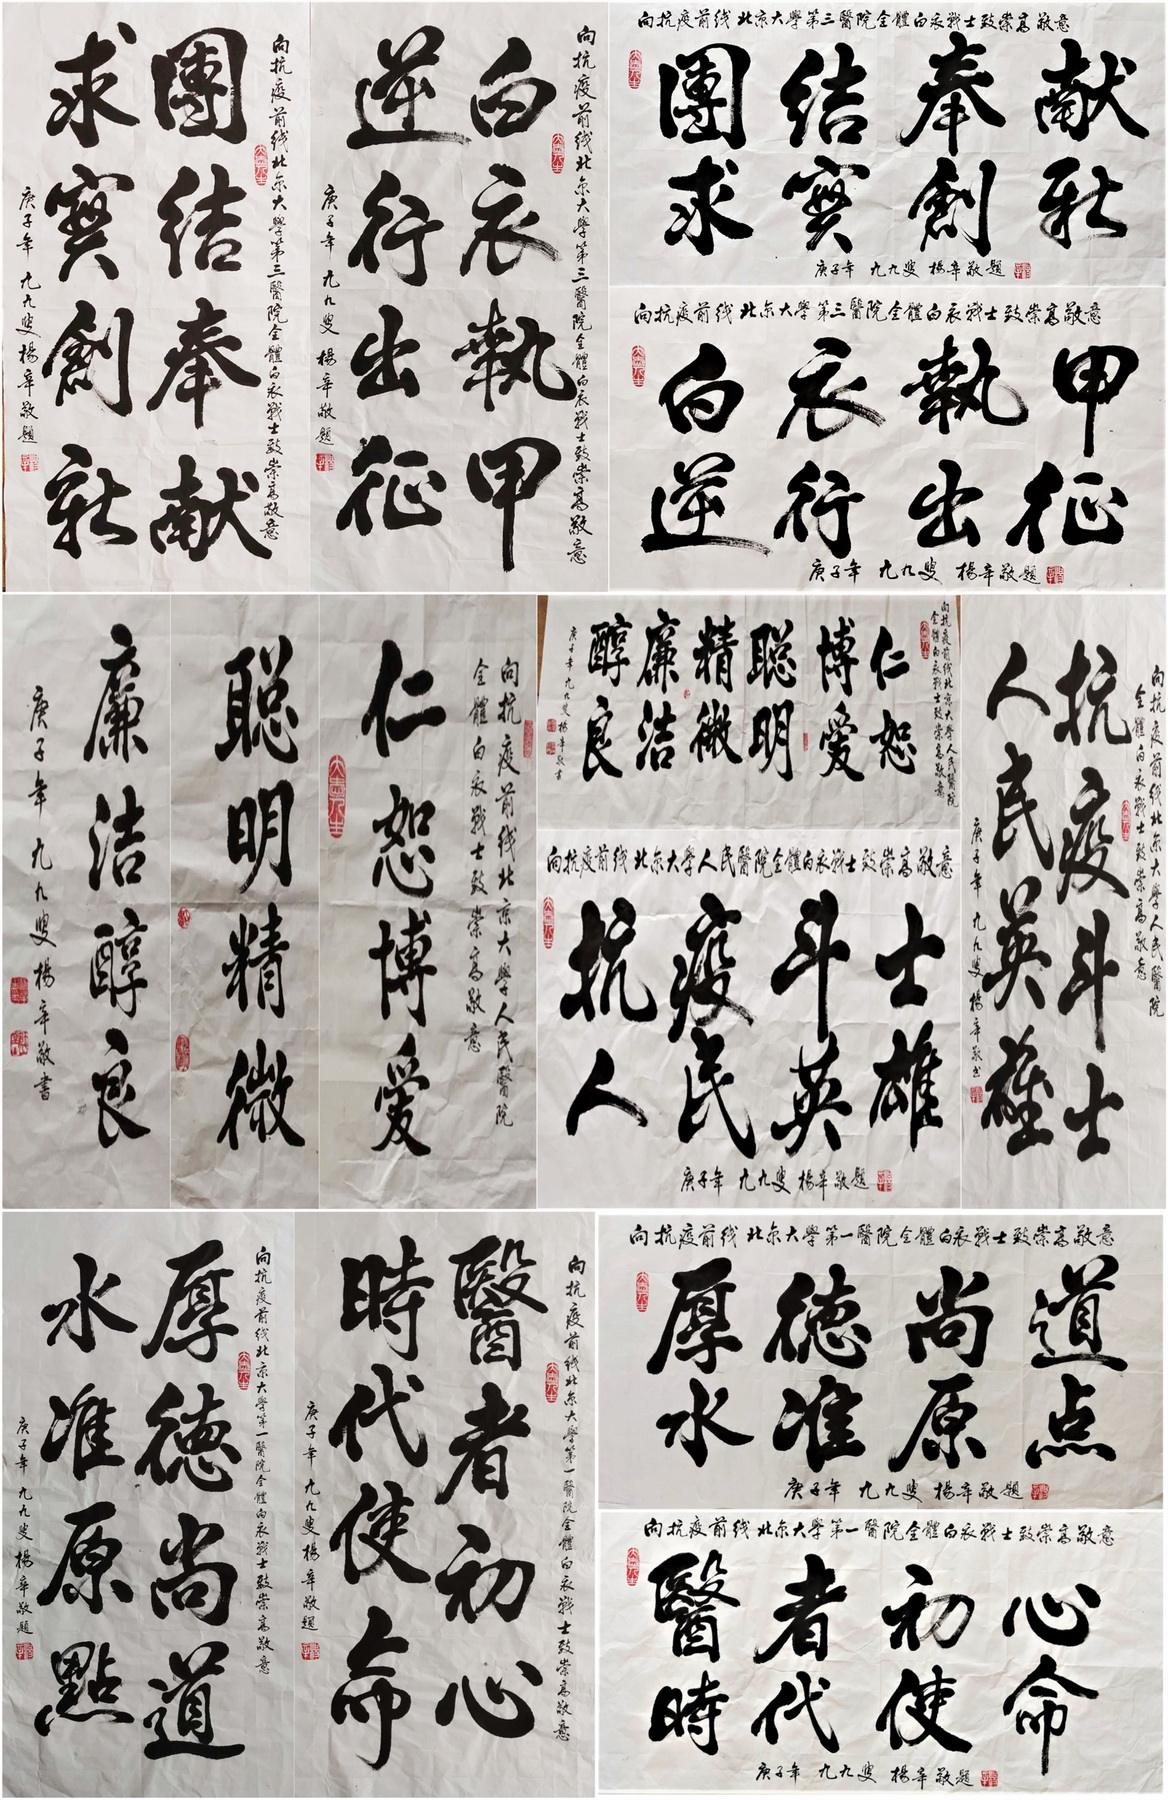 向抗疫前线北京大學第三醫院全體白衣戰士致崇高敬意
團結奉献
求實創新
庚子年 九九叟楊辛敬題
向抗疫前线北京大學第三醫院全體白衣戰士致崇高敬意
白衣執甲
逆行出征
庚子年 九九叟 楊辛敬題
向抗疫前线 北京大學第三醫院全體白衣戰士致崇高敬意
團結奉献
求實創新
庚子年 九九叟 楊辛敬題
向抗疫前线 北京大學第三醫院全體白衣戰士致崇高敬意
白衣執甲
逆行出征
庚子年 九九叟 楊辛敬題
向抗疫前线北京大學人民醫院
全體白衣戰士致崇高敬意
仁恕博愛
聪明精微
廉洁醇良
庚子年九九叟楊辛敬書
向抗疫前线北京大學人民醫院
全體白衣戰士致崇高敬意
仁恕
博愛
聪明
精微
廉洁
醇良
庚子年九九叟楊辛敬書
向抗疫前线 北京大學人民醫院全體白衣戰士致崇高敬意
抗疫斗士
人民英雄
庚子年 九九叟 楊辛敬題
向抗疫前线北京大學人民醫院
全體白衣戰士致崇高敬意
抗疫斗士
人民英雄
庚子年 九九叟 楊辛敬书
向抗疫前线北京大學第一醫院全體白衣戰士致崇高敬意
厚德尚道
水准原點
庚子年 九九叟楊辛敬題
向抗疫前线北京大學第一醫院全體白衣戰士致崇高敬意
醫者初心
時代使命
庚子年 九九叟楊辛敬題
向抗疫前线 北京大學第一醫院全體白衣戰士致崇高敬意
厚德尚道
水准原点
庚子年 九九叟 楊辛敬題
向抗疫前线 北京大學第一醫院全體白衣戰士致崇高敬意
醫者初心
時代使命
庚子年 九九叟 楊辛敬題